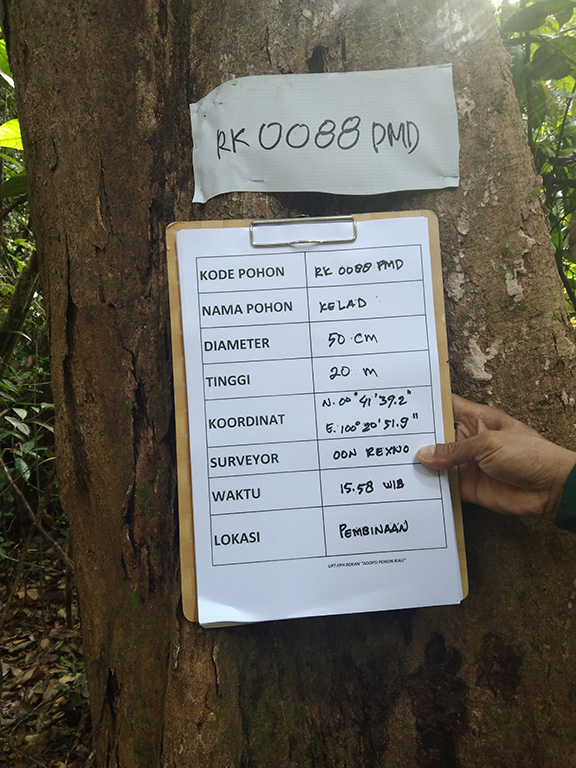 RK 0088 PMD
KODE POHON RK 0088 PMD
NAMA POHON KELAD
DIAMETER 50 cm
TINGGI 20 m
KOORDINAT N. 00° 41' 39.2"
E. 100° 20' 51.9"
SURVEYOR OON REXNO
WAKTU 15.58 WIB
LOKASI PEMBINAAN
UPT KPH ROKAN "ADOPSI POHON RIAU"